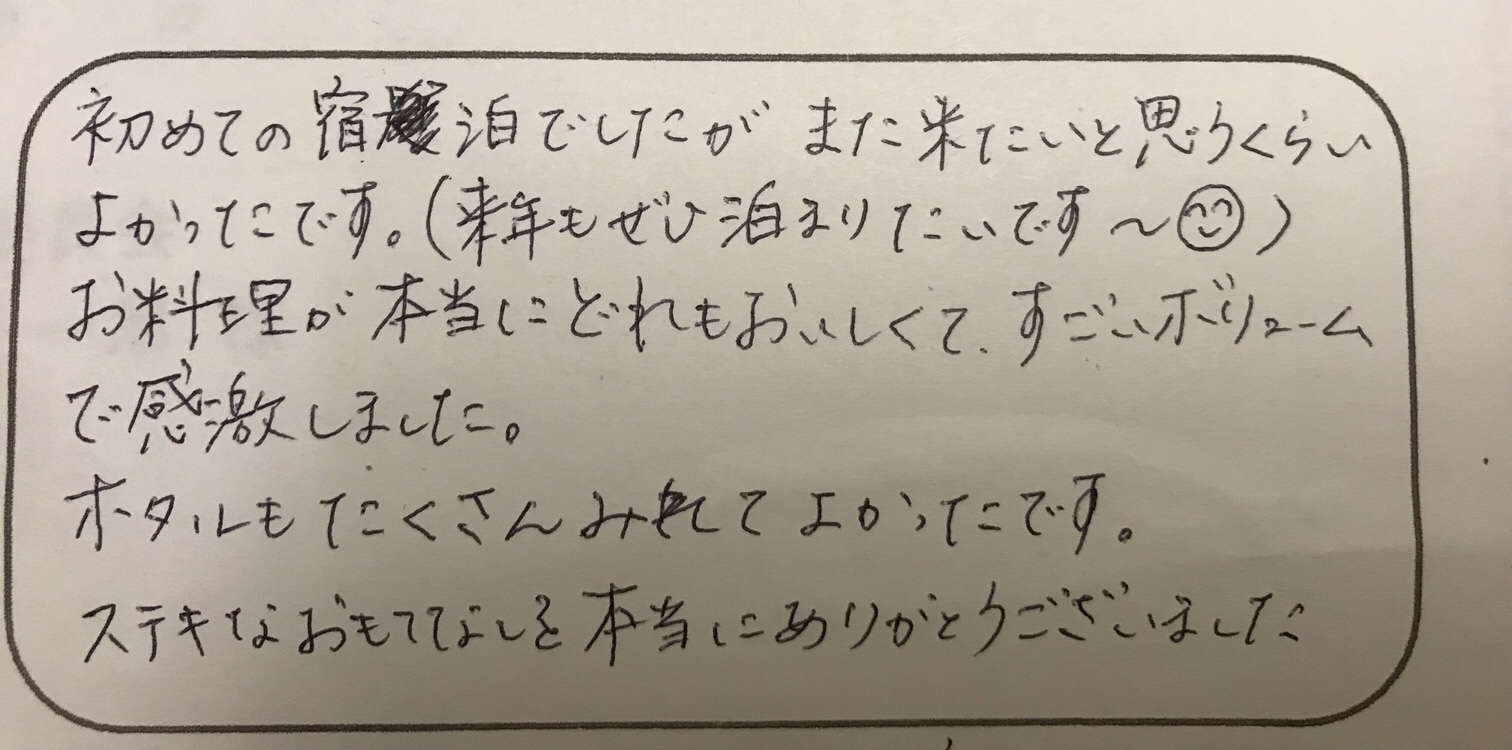 初めての宿泊でしたが また来たいと思うくらい
よかったです。(来年もぜひ泊まりたいです～☺)
お料理が本当にどれもおいしくて、すごいボリューム
で感激しました。
ホタルもたくさんみれてよかったです。
ステキなおもてなしを本当にありがとうございました